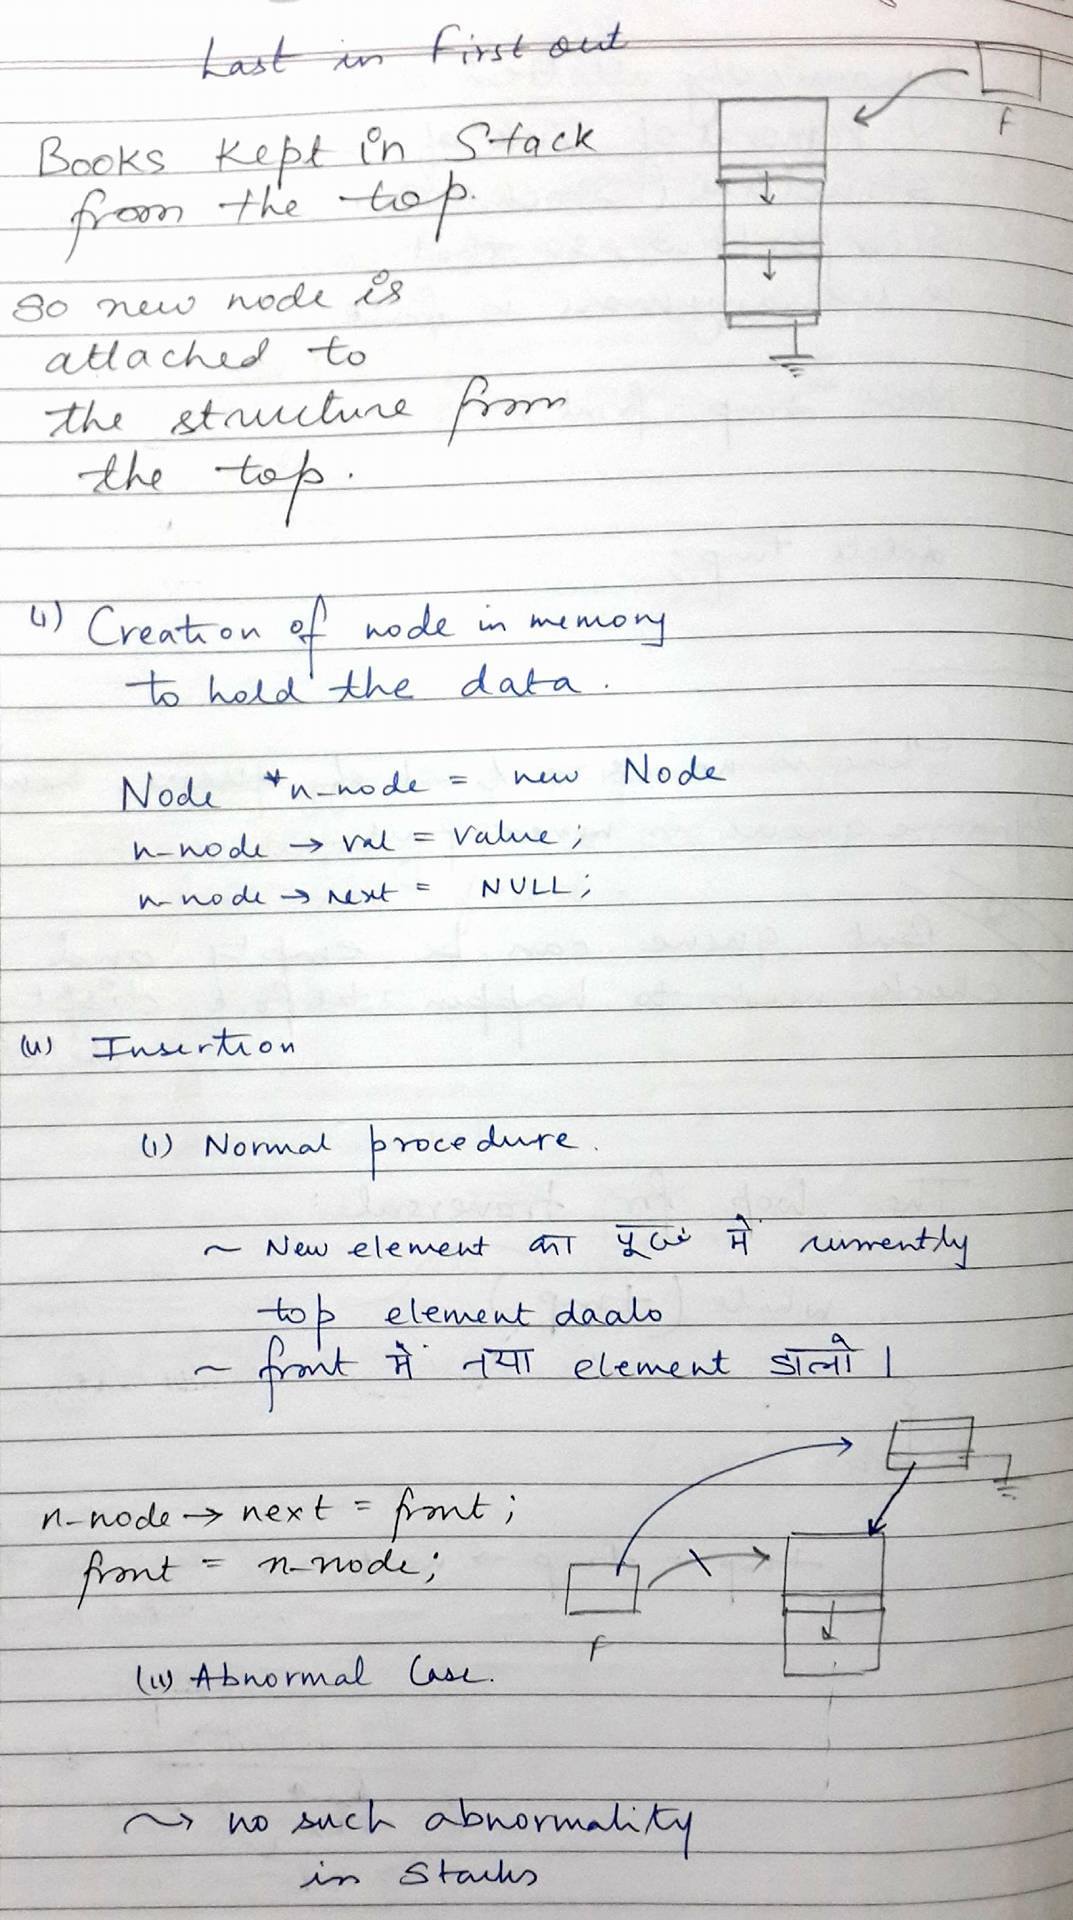 Last in first out
F
Books kept in Stack
from the top.
so new node is
attached to
the structure from
the top.
(i) Creation of node in memory
to hold the data.
Node *n-node = new Node
n-node → val = value;
n-node → next = NULL;
(ii) Insertion
(i) Normal procedure.
~ New element का में currently
top element daalo
~ front में नया element डालो।
n-node → next = front;
front = n-node;
F
(ii) Abnormal Case.
~> no such abnormality
in Stacks